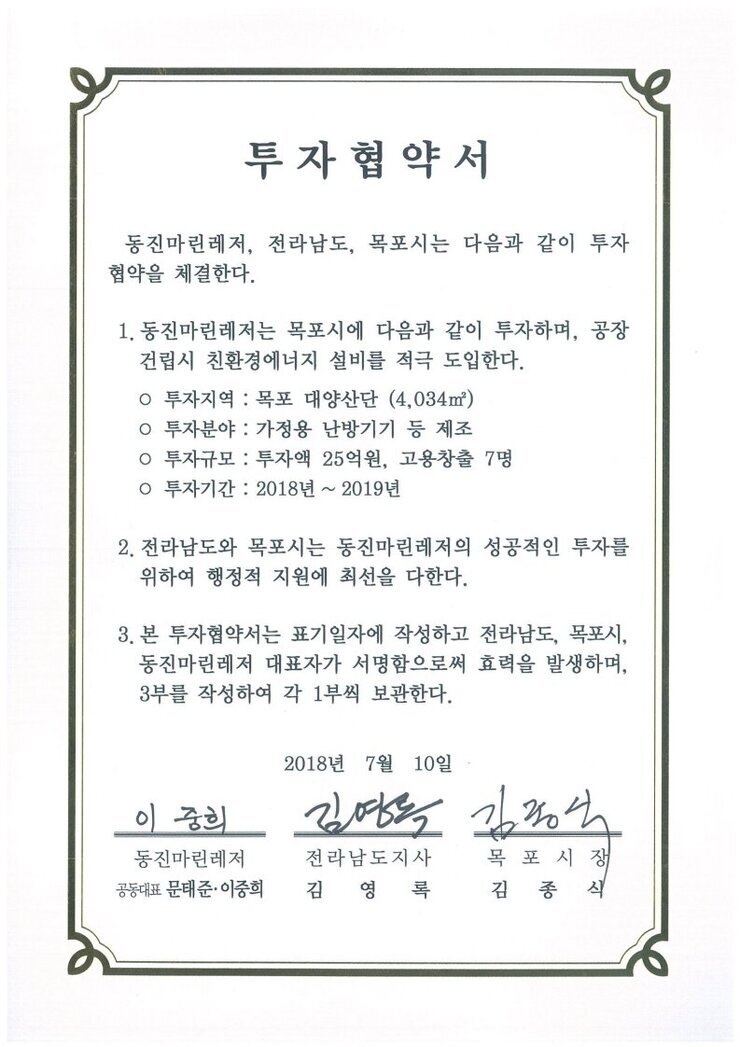 투자협약서
동진마린레저, 전라남도, 목포시는 다음과 같이 투자
협약을 체결한다.
1. 동진마린레저는 목포시에 다음과 같이 투자하며, 공장
건립시 친환경에너지 설비를 적극 도입한다.
○ 투자지역 : 목포 대양산단 (4,034㎡)
○ 투자분야 : 가정용 난방기기 등 제조
○ 투자규모 : 투자액 25억원, 고용창출 7명
○ 투자기간 : 2018년 ~ 2019년
2. 전라남도와 목포시는 동진마린레저의 성공적인 투자를
위하여 행정적 지원에 최선을 다한다.
3. 본 투자협약서는 표기일자에 작성하고 전라남도, 목포시,
동진마린레저 대표자가 서명함으로써 효력을 발생하며,
3부를 작성하여 각 1부씩 보관한다.
2018년 7월 10일
이중희 김영록 김종식
동진마린레저 전라남도지사 목포시장
공동대표 문태준·이중희 김영록 김종식